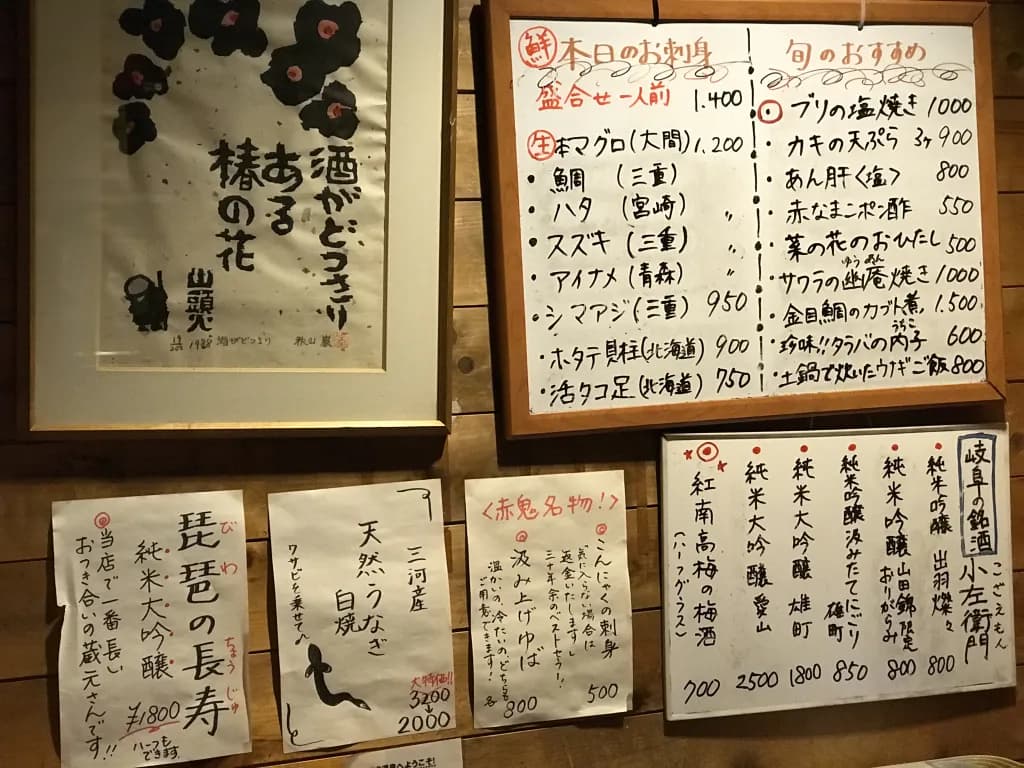 酒がどっさり
ある
椿の花
山頭火
1986 酒がどっさり 秋山巌
鮮 本日のお刺身
盛合せ一人前 1.400
生 本マグロ(大間) 1,200
・鯛 (三重)
・ハタ (宮崎) 〃
・スズキ (三重) 〃
・アイナメ (青森) 〃
・シマアジ(三重) 950
・ホタテ貝柱(北海道) 900
・活タコ足(北海道) 750
旬のおすすめ
ブリの塩焼き 1000
・カキの天ぷら 3ヶ 900
・あん肝〈塩〉 800
・赤なまこポン酢 550
・菜の花のおひたし 500
・サワラの幽庵焼き 1000
ゆうあん
・金目鯛のカブト煮 1.500
・珍味!!タラバの内子 600
うちこ
・土鍋で炊いたウナギご飯 800
岐阜の銘酒 小左衛門
こざえもん
純米吟醸 出羽燦々 800
純米吟醸 山田錦限定 おりがらみ 800
純米吟醸 汲みたてにごり 雄町 850
純米大吟醸 雄町 1800
純米大吟醸 愛山 2500
紅南高梅の梅酒 700
(ハーフグラス)
〈赤鬼名物!〉
こんにゃくの刺身 500
「気に入らない場合は
返金いたします」
三十年余のベストセラー!
汲み上げゆば
温かいの冷たいのどちらも
ご用意できます! 各800
三河産
天然うなぎ
白焼
ワサビを乗せて
大特価!!
3200
2000
琵琶の長寿
びわ ちょうじゅ
純米大吟醸 ¥1800
ハーフも
できます
当店で一番長い
おつき合いの蔵元さんです!!
へようこそ!